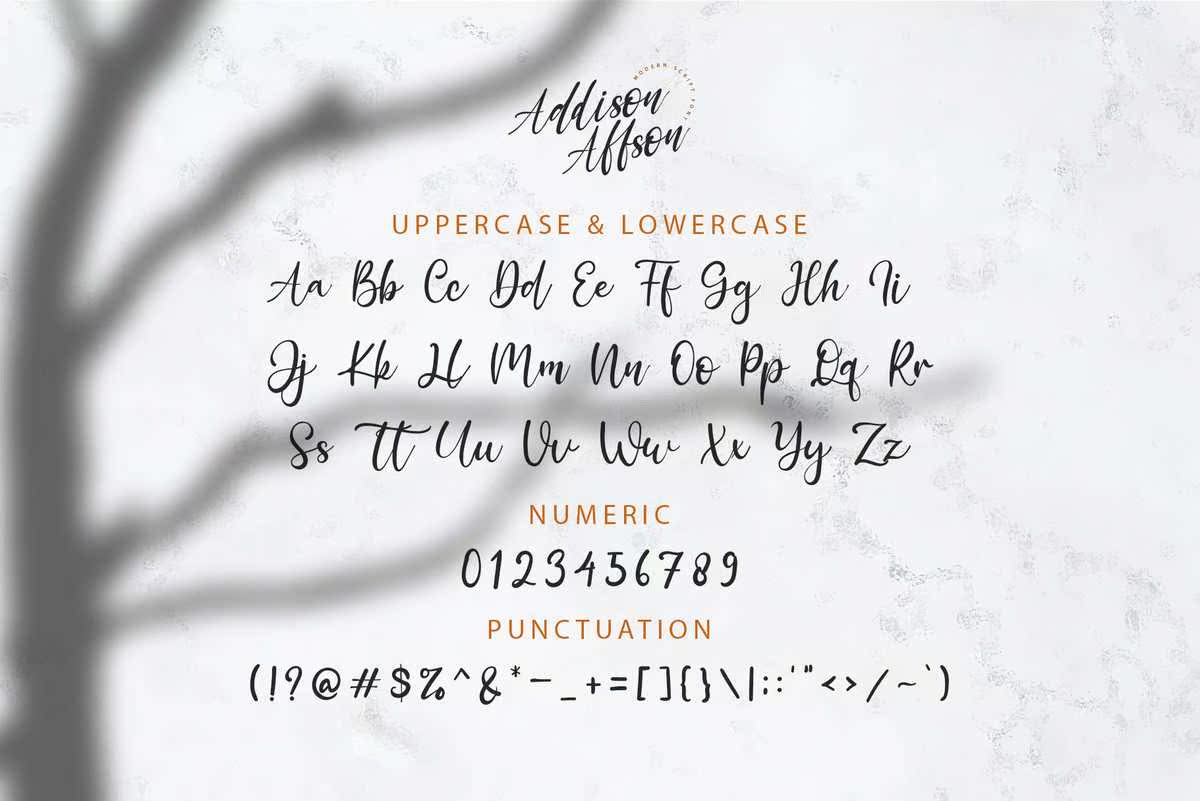 MODERN SCRIPT FONT
Addison
Affson
UPPERCASE & LOWERCASE
Aa Bb Cc Dd Ee Ff Gg Hh Ii
Jj Kk Ll Mm Nn Oo Pp Qq Rr
Ss Tt Uu Vv Ww Xx Yy Zz
NUMERIC
0123456789
PUNCTUATION
(!?@#$%^&*-_+=[]{}\|::'"<>/~`)